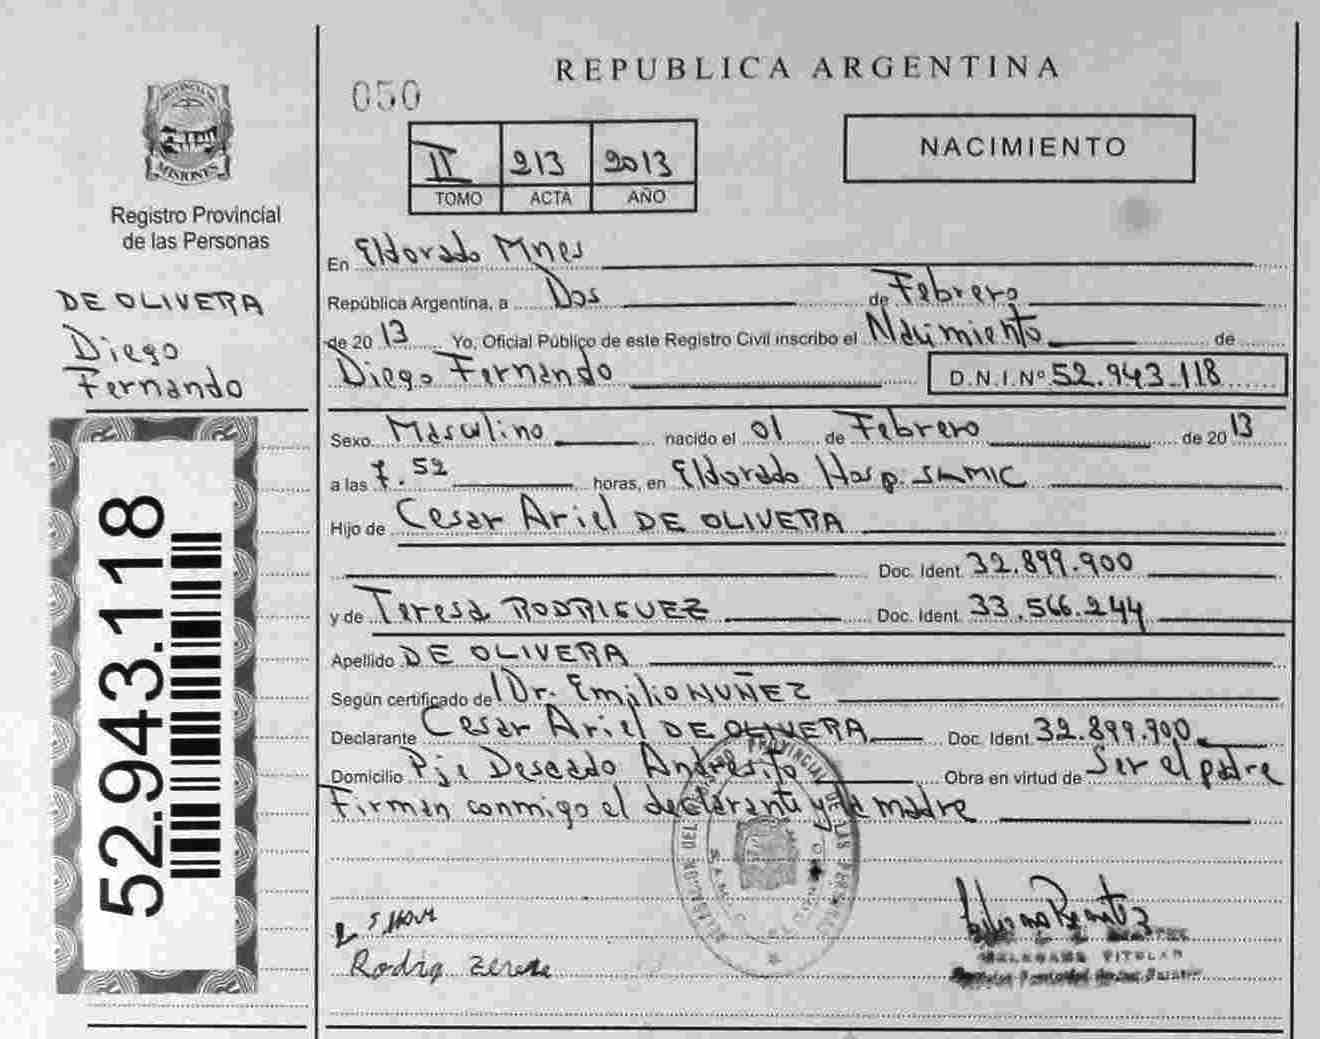 REPUBLICA ARGENTINA
050
NACIMIENTO
II 213 2013
TOMO ACTA AÑO
MISIONES
Registro Provincial
de las Personas
DE OLIVERA
Diego
Fernando
52.943.118
En Eldorado Mnes
República Argentina, a Dos de Febrero
de 2013 Yo, Oficial Público de este Registro Civil inscribo el Nacimiento de
Diego Fernando D.N.I.Nº 52.943.118
Sexo Masculino nacido el 01 de Febrero de 2013
a las 7.52 horas, en Eldorado Hosp. SAMIC
Hijo de Cesar Ariel DE OLIVERA
Doc. Ident. 32.899.900
y de Teresa RODRIGUEZ Doc. Ident. 33.566.244
Apellido DE OLIVERA
Según certificado de Dr. Emilio NUÑEZ
Declarante Cesar Ariel DE OLIVERA Doc. Ident. 32.899.900
Domicilio Pje Deseado Andresito Obra en virtud de Ser el padre
Firman conmigo el declarante y la madre
PROVINCIAL DE LAS PERSONAS
Rodrig
TITULAR